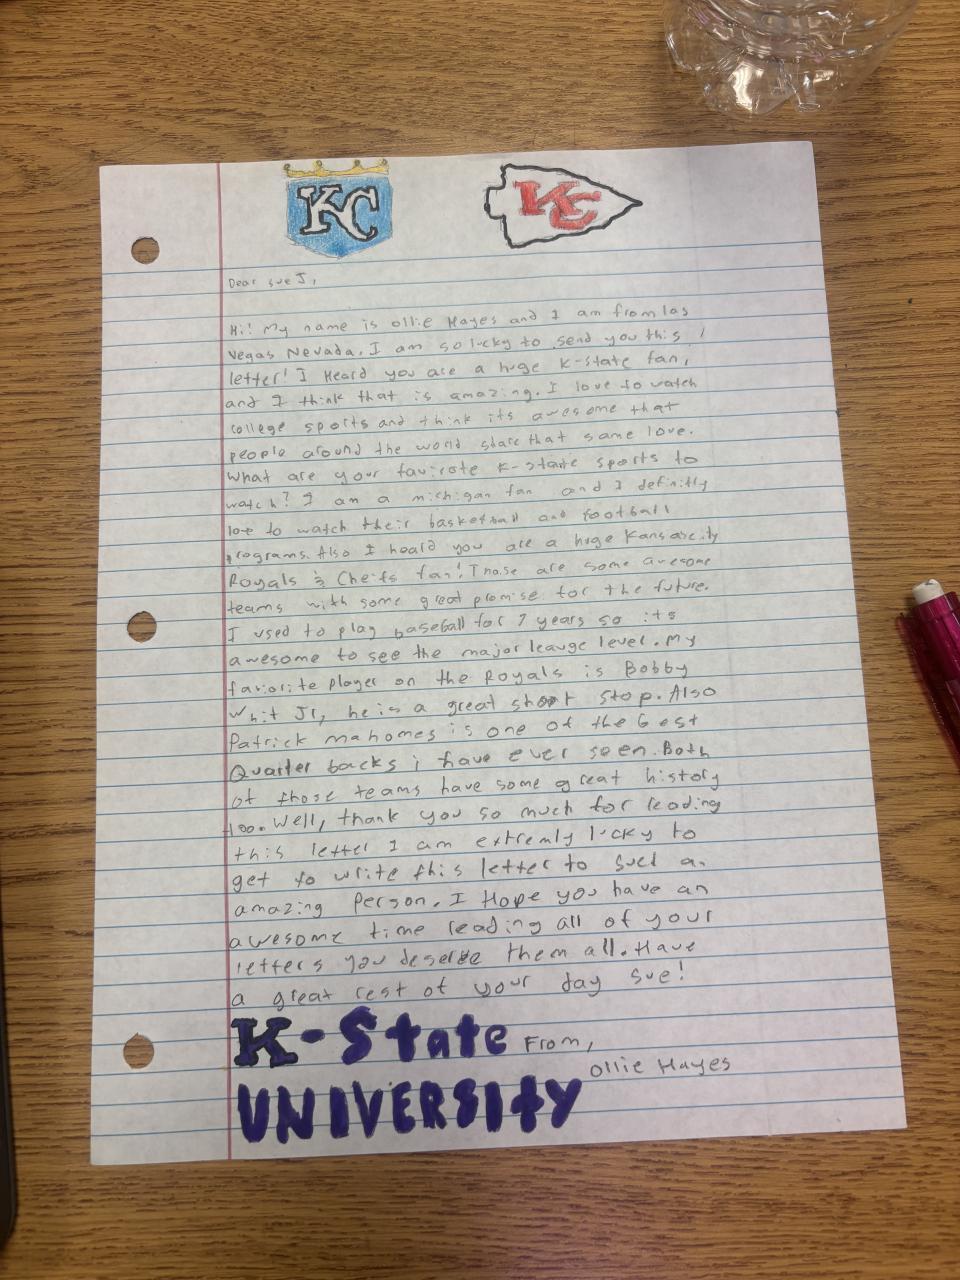 KC KC
Dear Sue J,
Hi! My name is Ollie Hayes and I am from las
Vegas Nevada. I am so lucky to send you this
letter! I Heard you are a huge K-State fan,
and I think that is amazing. I love to watch
college sports and think its awesome that
people around the world share that same love.
What are your favirote K-State sports to
watch? I am a michigan fan and I definitly
love to watch their basketball and football
programs. Also I heard you are a huge Kansas city
Royals & Cheifs fan! Those are some awesome
teams with some great promise for the future.
I used to play baseball for 7 years so its
awesome to see the major leauge level. My
faviorite player on the Royals is Bobby
Whit Jr, he is a great short stop. Also
Patrick mahomes is one of the best
Quarter backs i have ever seen. Both
of those teams have some great history
too. Well, thank you so much for reading
this letter I am extremly lucky to
get to write this letter to such an
amazing Person. I Hope you have an
awesome time reading all of your
letters you deserve them all. Have
a great rest of your day Sue!
K-State From,
Ollie Hayes
UNIVERSITY